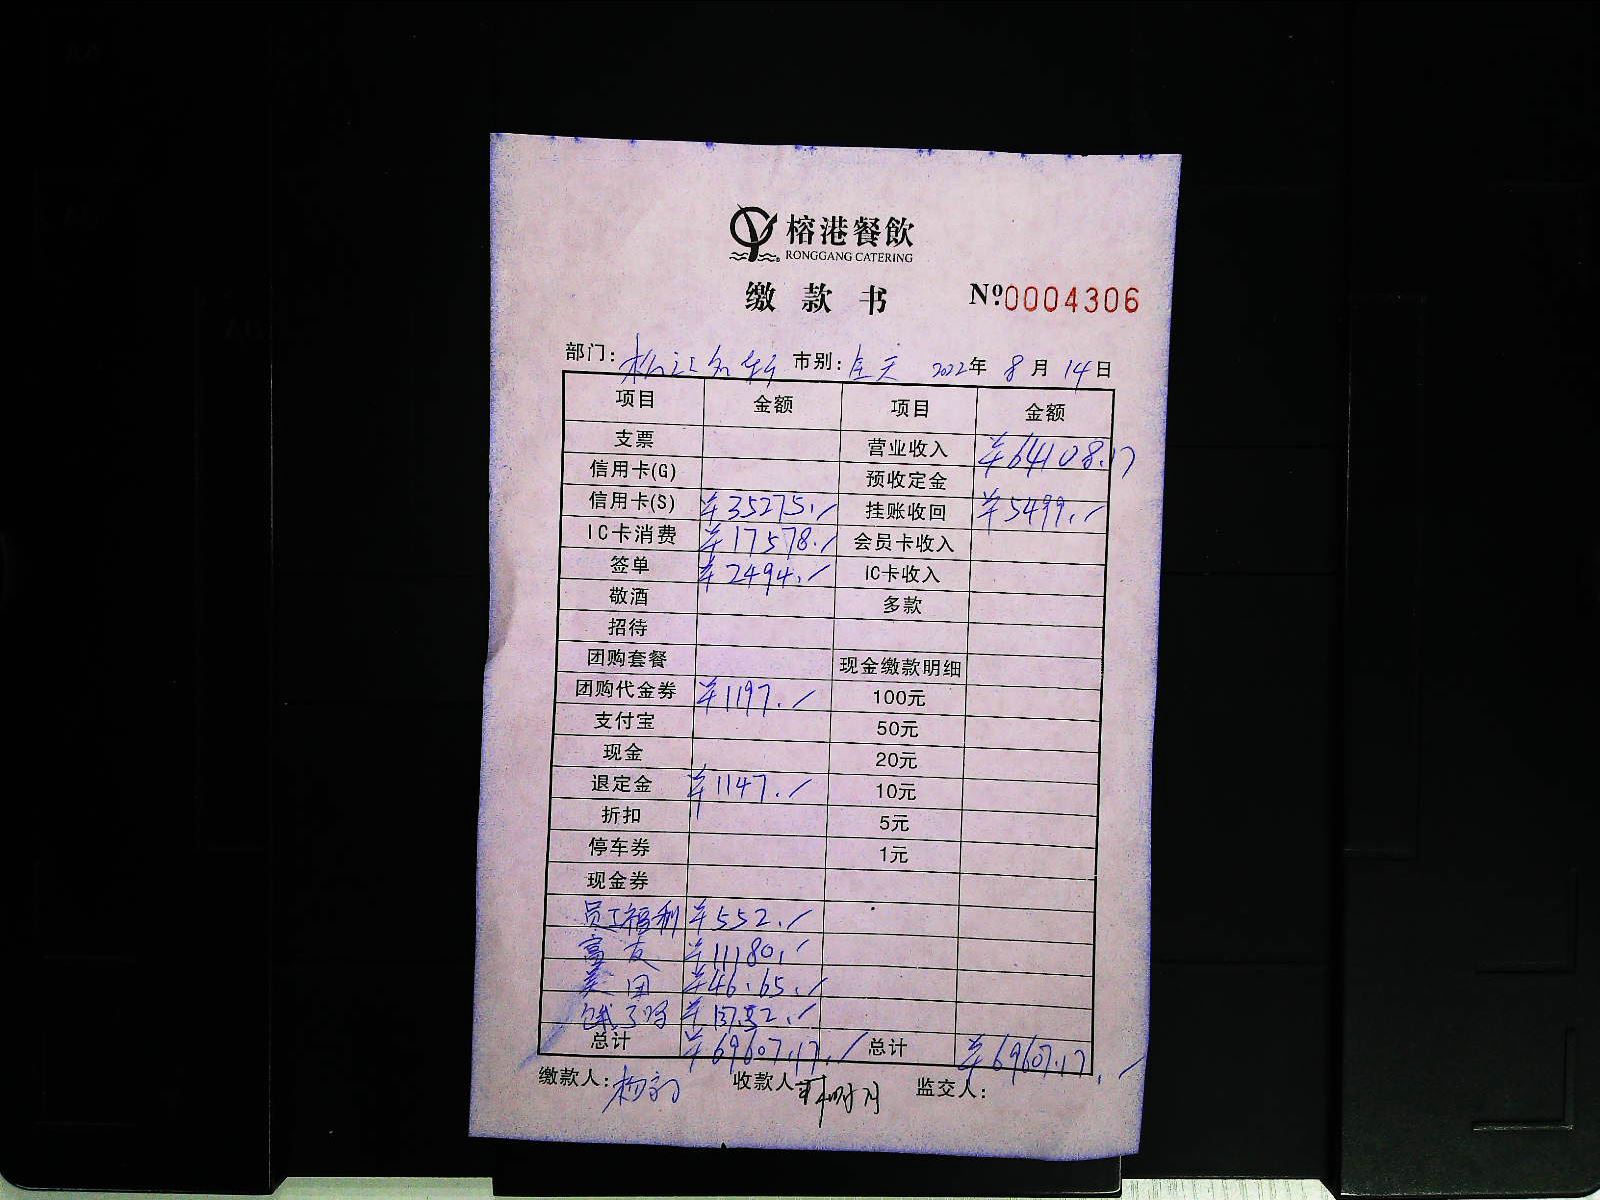 榕港餐飲
RONGGANG CATERING
缴款书 Nº0004306
部门: 松江名轩 市别: 全天 2022年 8月 14日
项目 金额 项目 金额
支票 营业收入 ¥64108.17
信用卡(G) 预收定金
信用卡(S) ¥35275.- 挂账收回 ¥5499.-
IC卡消费 ¥17578.- 会员卡收入
签单 ¥2494.- IC卡收入
敬酒 多款
招待
团购套餐 现金缴款明细
团购代金券 ¥1197.- 100元
支付宝 50元
现金 20元
退定金 ¥1147.- 10元
折扣 5元
停车券 1元
现金券
员工福利 ¥552.-
¥11180.-
美团 ¥46.65.-
饿了吗
总计 ¥69607.17.- 总计 ¥69607.17.-
缴款人: 收款人 监交人: